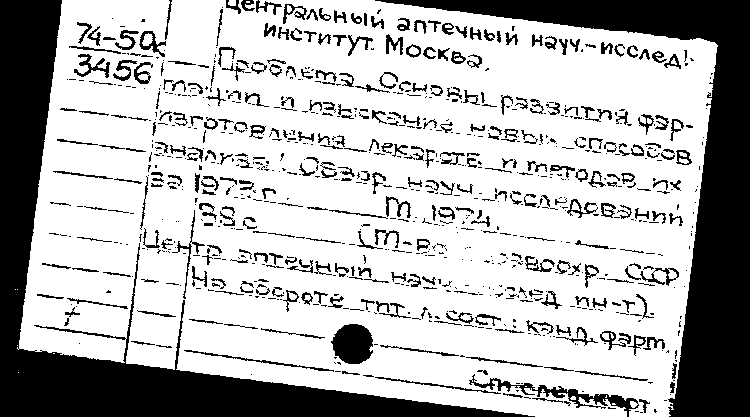 Центральный аптечный науч.-исслед!
институт. Москва.
74-50
3456
Проблема „Основы развития фар-
мации и изыскание новых способов
изготовления лекарств и методов их
анализа! Обзор науч. исследований
за 1973 г. М., 1974.
38 с. (М-во здравоохр. СССР
Центр аптечный науч. исслед ин-т).
На обороте тит. л. сост.: канд. фарм.
7
См. след. карт.